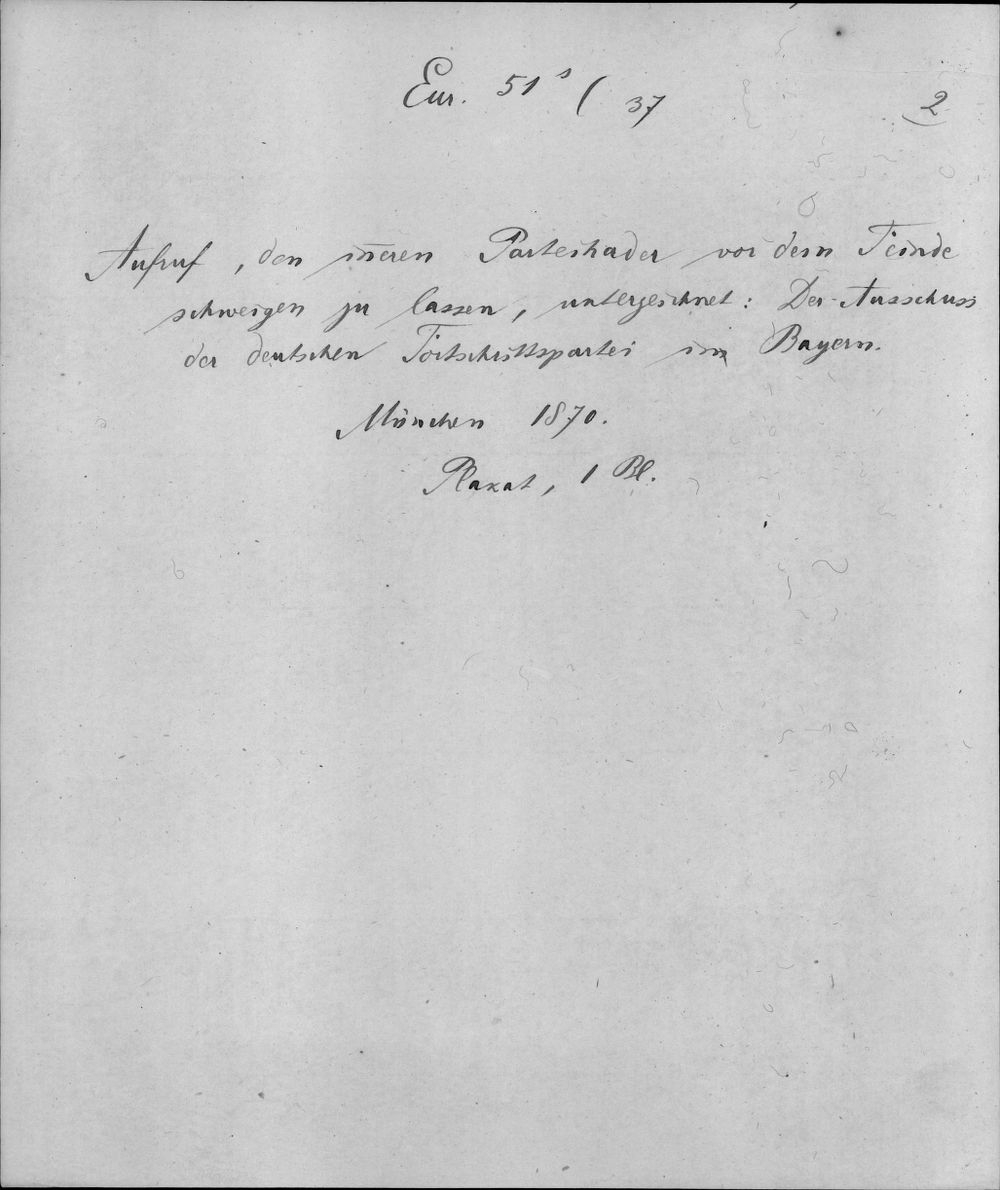 Eur. 51 s ( 37 2
Aufruf, den in̄eren Parteihader vor dem Feinde
schweigen zu lassen, unterzeichnet: Der Ausschuss
der deutschen Fortschrittspartei in Bayern.
München 1870.
Plakat, 1 Bl.